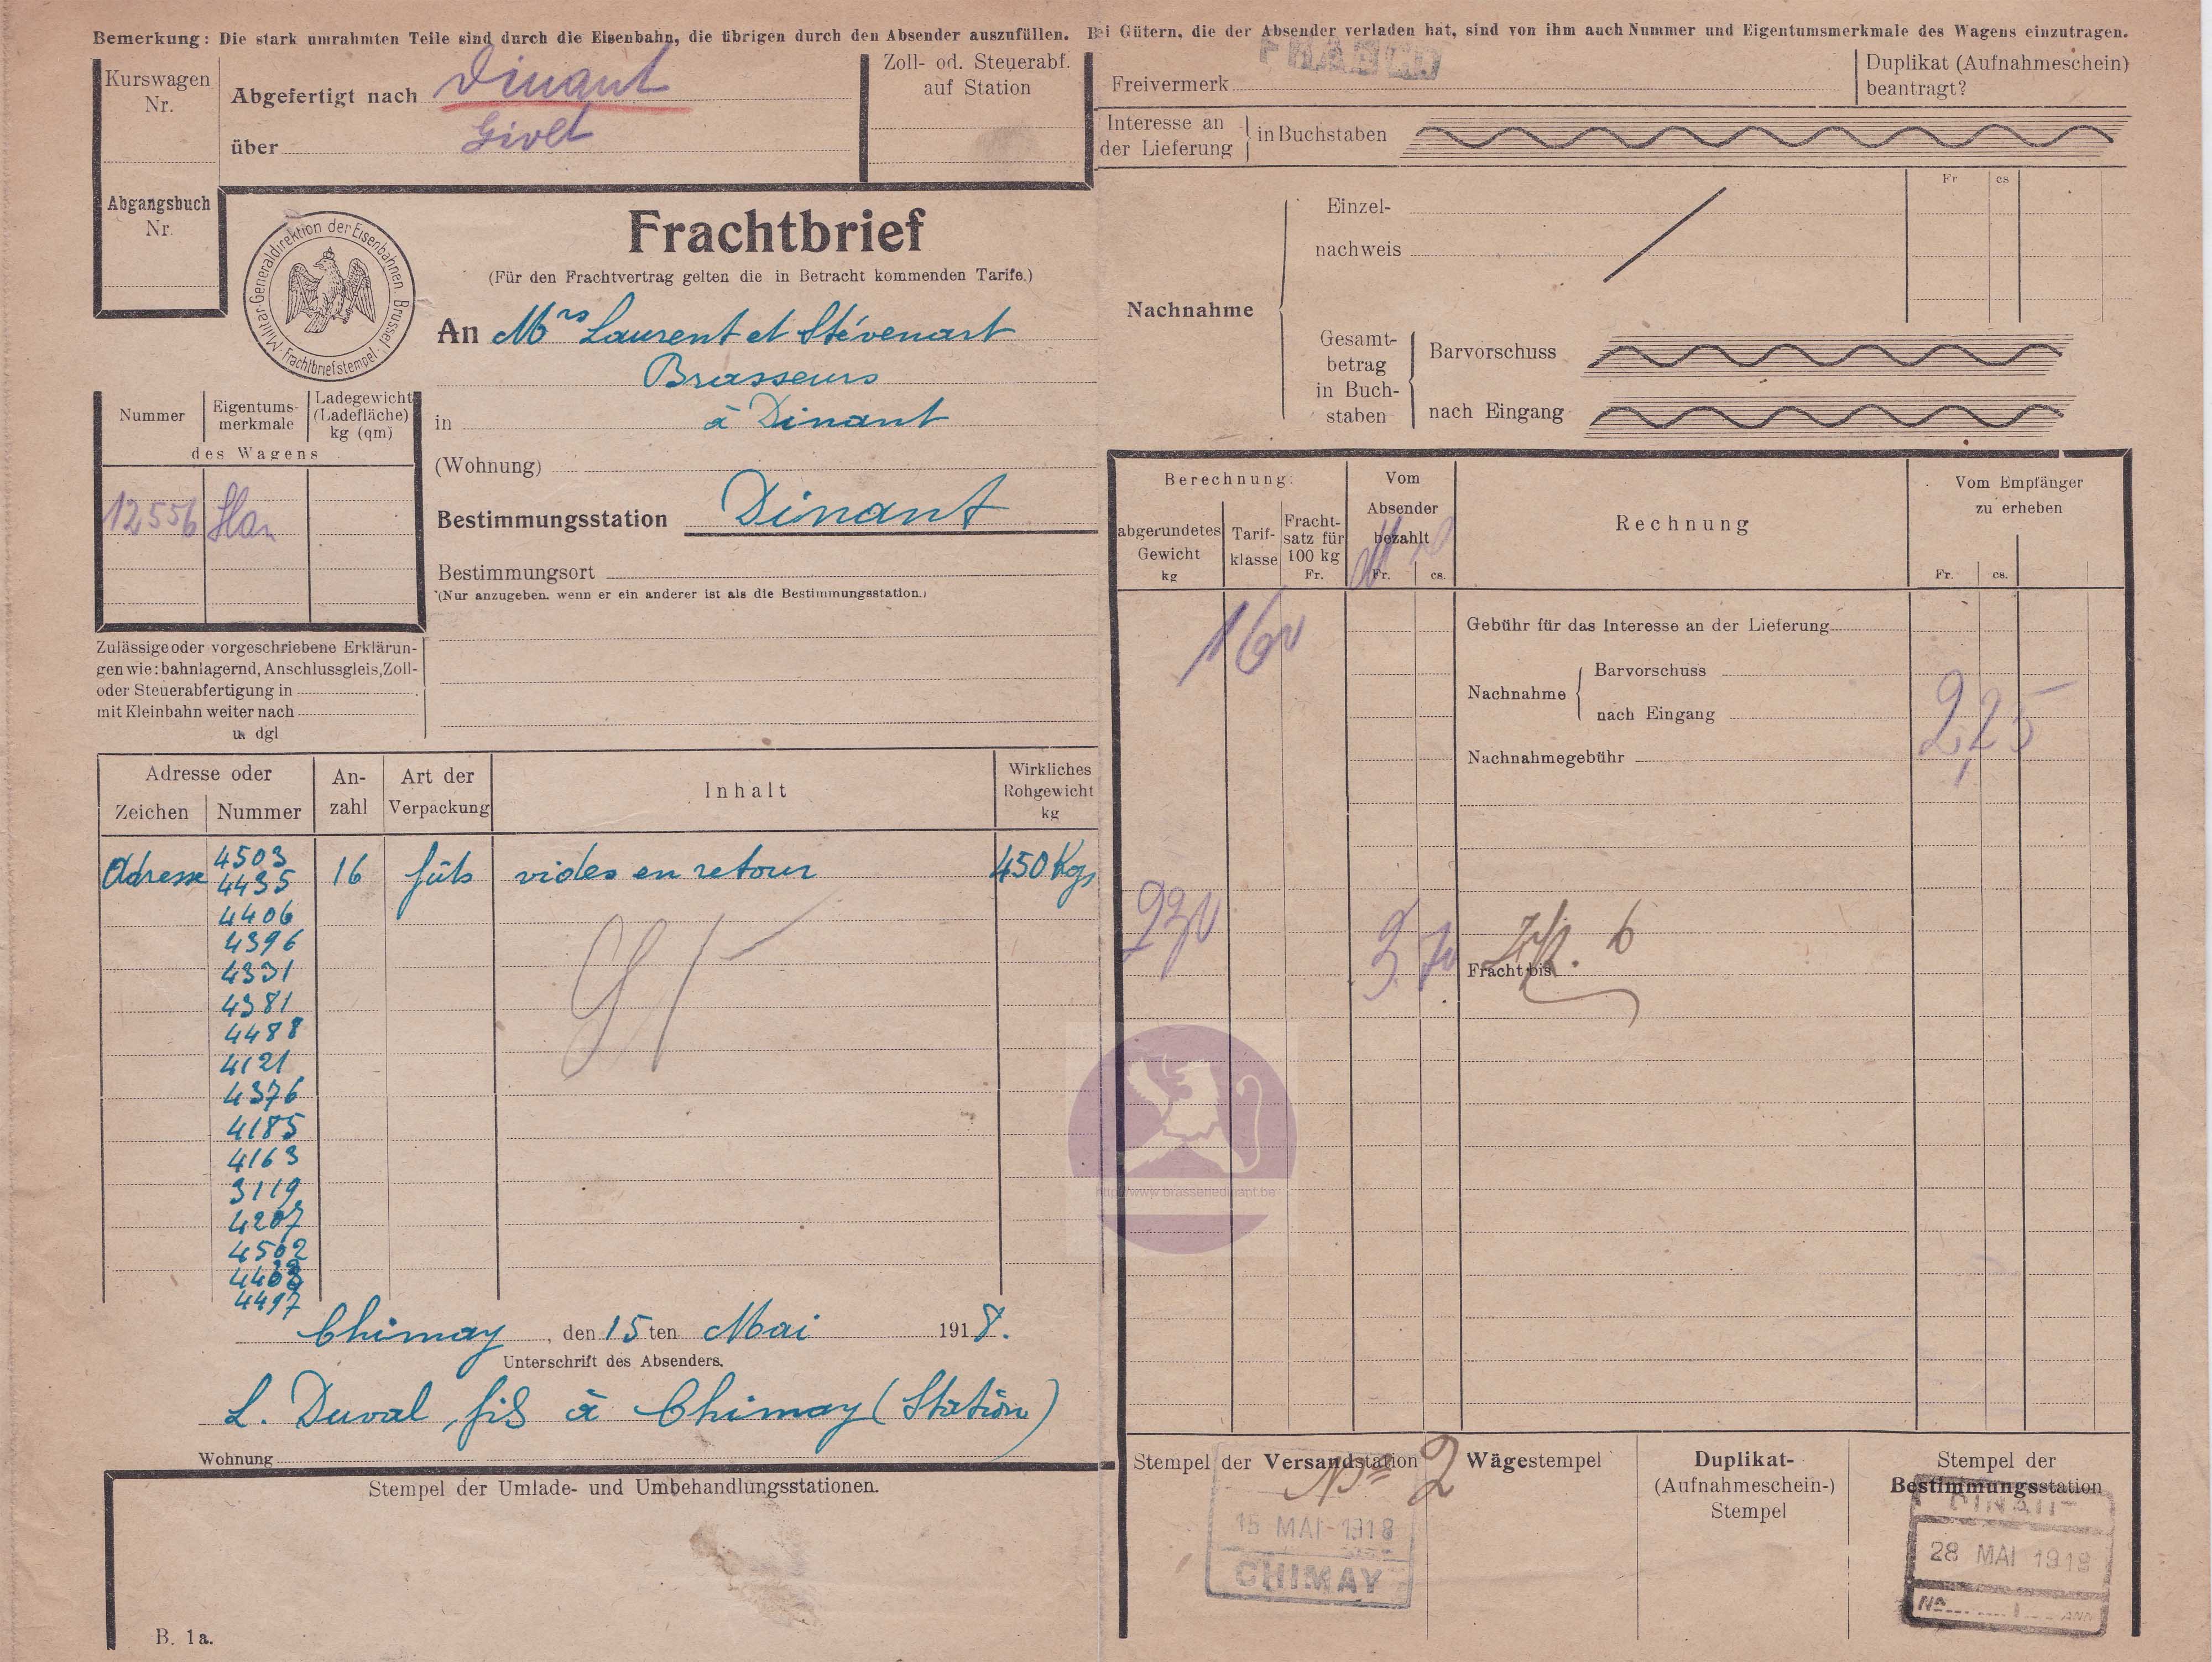 Bemerkung: Die stark umrahmten Teile sind durch die Eisenbahn, die übrigen durch den Absender auszufüllen. Bei Gütern, die der Absender verladen hat, sind von ihm auch Nummer und Eigentumsmerkmale des Wagens einzutragen.
Kurswagen
Nr.
Abgefertigt nach Dinant
über Givet
Zoll- od. Steuerabf.
auf Station
FRANCO
Freivermerk
Duplikat (Aufnahmeschein)
beantragt?
Interesse an
der Lieferung
in Buchstaben
Abgangsbuch
Nr.
Militär-Generaldirektion der Eisenbahnen Brüssel
Frachtbriefstempel
Frachtbrief
(Für den Frachtvertrag gelten die in Betracht kommenden Tarife.)
An Mrs Laurent et Stévenart
Brasseurs
in à Dinant
(Wohnung)
Bestimmungsstation Dinant
Bestimmungsort
(Nur anzugeben, wenn er ein anderer ist als die Bestimmungsstation.)
Nummer
Eigentums-
merkmale
Ladegewicht
(Ladefläche)
kg (qm)
des Wagens
12556
Zulässige oder vorgeschriebene Erklärun-
gen wie: bahnlagernd, Anschlussgleis, Zoll-
oder Steuerabfertigung in
mit Kleinbahn weiter nach
u. dgl
Adresse oder
Zeichen
Nummer
An-
zahl
Art der
Verpackung
Inhalt
Wirkliches
Rohgewicht
kg
Adresse 4503 16 fûts vides en retour 450 Kgs
4435
4406
4396
4331
4381
4488
4121
4376
4185
4163
3119
4207
4502
4497
Chimay, den 15 ten Mai 1918.
Unterschrift des Absenders.
L. Duval fils à Chimay (Station)
Wohnung
Stempel der Umlade- und Umbehandlungsstationen.
B. 1a.
Nachnahme
Einzel-
nachweis
Fr
cs
Gesamt-
betrag
in Buch-
staben
Barvorschuss
nach Eingang
Berechnung:
abgerundetes
Gewicht
kg
Tarif-
klasse
Fracht-
satz für
100 kg
Fr.
Vom
Absender
bezahlt
Fr.
cs.
Rechnung
Vom Empfänger
zu erheben
Fr.
cs.
160
Gebühr für das Interesse an der Lieferung
Nachnahme
Barvorschuss
nach Eingang
2,25
Nachnahmegebühr
230
3 70
6
Fracht bis
http://www.brasseriedinant.be
Stempel der Versandstation
No 2
15 MAI 1918
CHIMAY
Wägestempel
Duplikat-
(Aufnahmeschein-)
Stempel
Stempel der
Bestimmungsstation
DINANT
28 MAI 1918
No